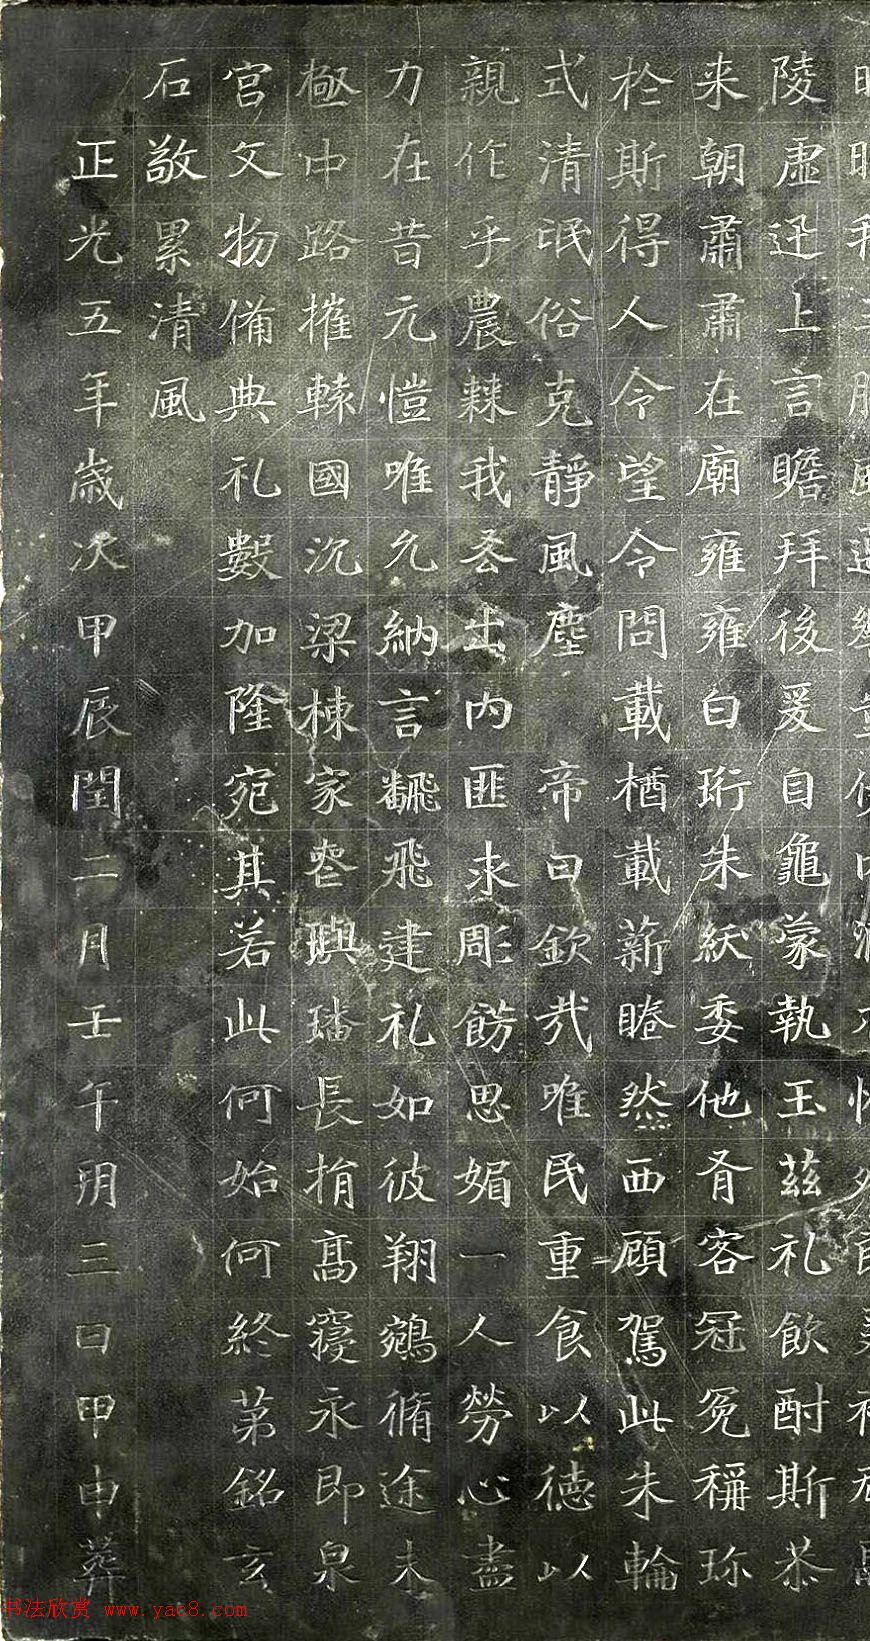 陵虛迅上言瞻拜後爰自龜蒙執玉茲礼飲酎斯恭
来朝肅肅在廟雍雍白珩朱紱委他胥客冠冕稱珎
於斯得人令望令問載槱載薪睠然西顧駕此朱輪
式清氓俗克靜風塵　帝曰欽哉唯民重食以德以
親作乎農棘我叅出内匪求彫餝思媚一人勞心盡
力在昔元愷唯允納言飜飛建礼如彼翔鵷脩途未
極中路摧轅國沉梁棟家喪璵璠長捐高寢永即泉
宮文物備典礼數加隆宛其若此何始何終苐銘玄
石敬累清風
正光五年歲次甲辰閏二月壬午朔三日甲申葬
书法欣赏 www.yac8.com